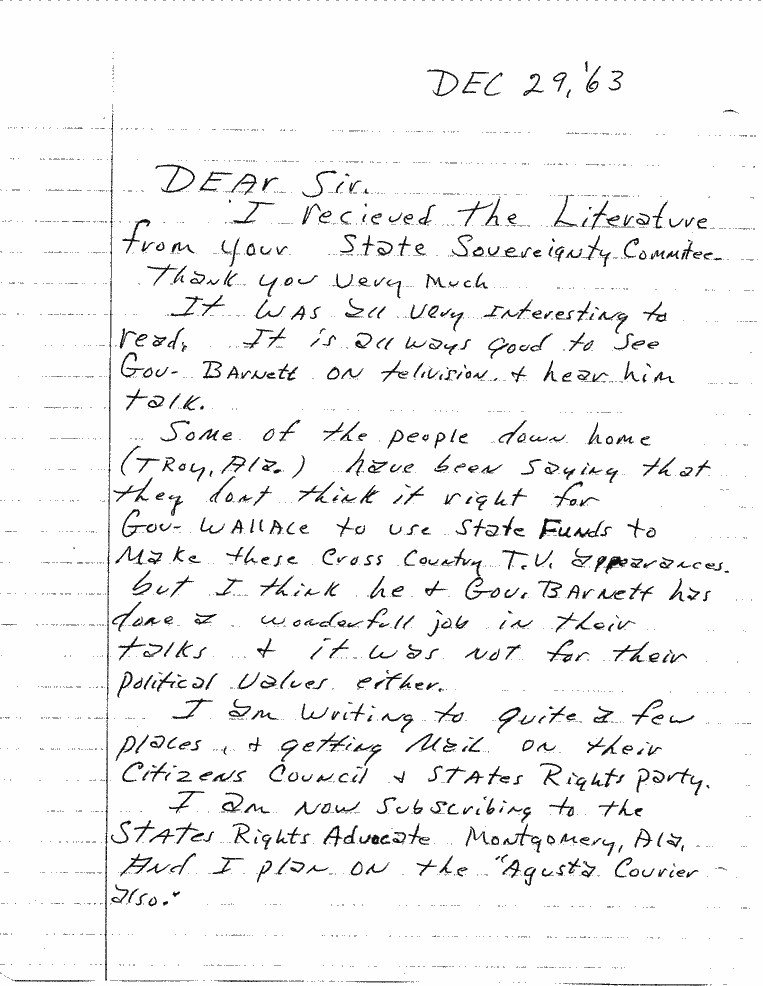 DEC 29, '63
DEAr Sir.
I recieved the Literature
from your State Sovereignty Commitee.
Thank you Very Much
It WAS all very Interesting to
read. It is all ways good to See
Gov- BArnett ON telivision. & hear him
talk.
Some of the people down home
(TRoy, Ala.) have been saying that
they dont think it right for
Gov- WAllAce to use State Funds to
Make these Cross Country T.V. appearances.
but I think he & Gov. BArnett has
done a wonderfull job in their
talks & it was not for their
political Values either.
I am Writing to quite a few
places, & getting Mail on their
Citizens Council & STAtes Rights party.
I am now Subscribing to the
STAtes Rights Advocate Montgomery, Ala.
And I plan on the "Agusta Courier
also."